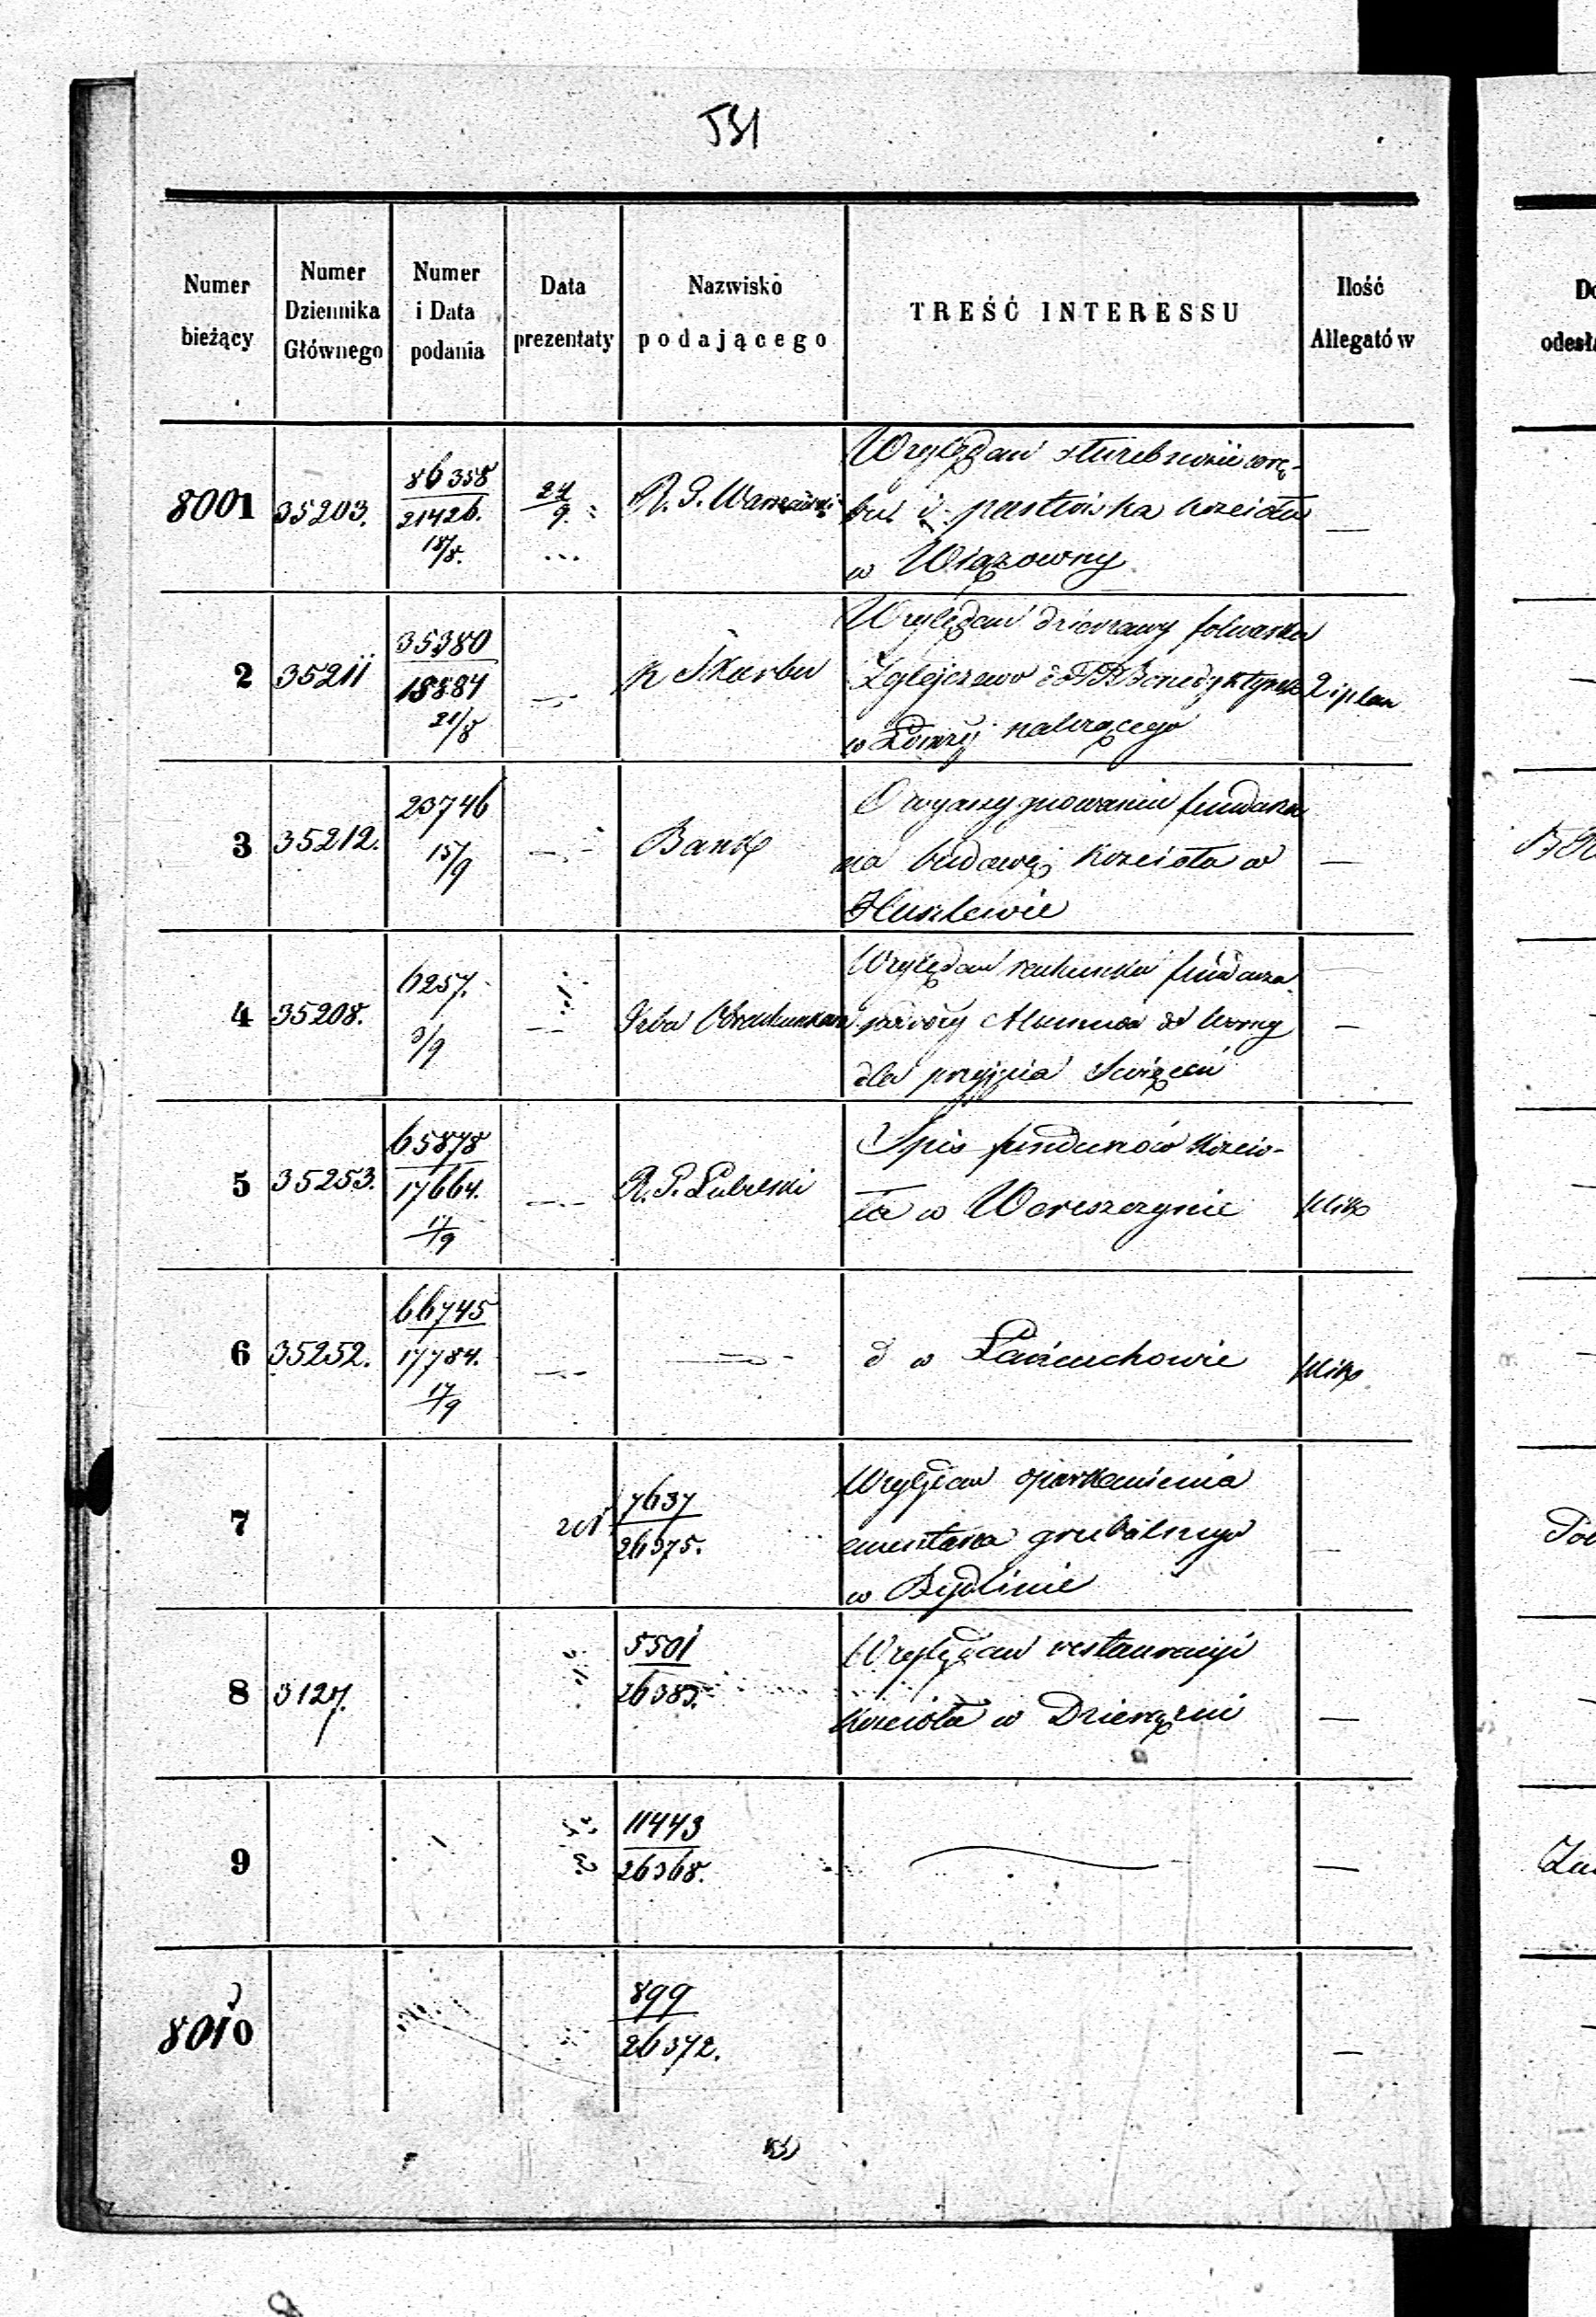 531
Numer bieżący
Numer Dziennika Głównego
Numer i Data podania
Data prezentaty
Nazwisko podającego
TREŚĆ INTERESSU
Ilość Allegatów
8001
35203.
86358
21426.
18/8.
24
9.
R. G. Warszawski
Względem służebności wrę-
bu i pastwiska kościoła
w Wiązowny
—
2
35211
35380
18884
21/8
K Skarbu
Względem dzierżawy folwarku
Zglejczewo do PP Benedyktynek
w Łomży należącego
2 i plan
3
35212.
23746
15/9
Bank
O wyassygnowaniu fundusza
na budowę kościoła w
Huszlewie
—
4
35208.
6257.
9/9
Izba Obrachunkowa
Względem rachunku fundusza
dla przyjęcia Święceń
—
5
35253.
65878
17664.
17/9
R. G. Lubelski
Spis funduszów kościo-
ła w Wereszczynie
plik
6
35252.
66745
17784.
17/9
d w Łańcuchowie
plik
7
7637
26375.
Względem oparkanienia
cmentarza grzebalnego
w Bydlinie
8
3127.
5501
26383.
Względem restauracyi
kościoła w Dzierążni
—
9
11443
26368.
—
8010
899
26372.
—